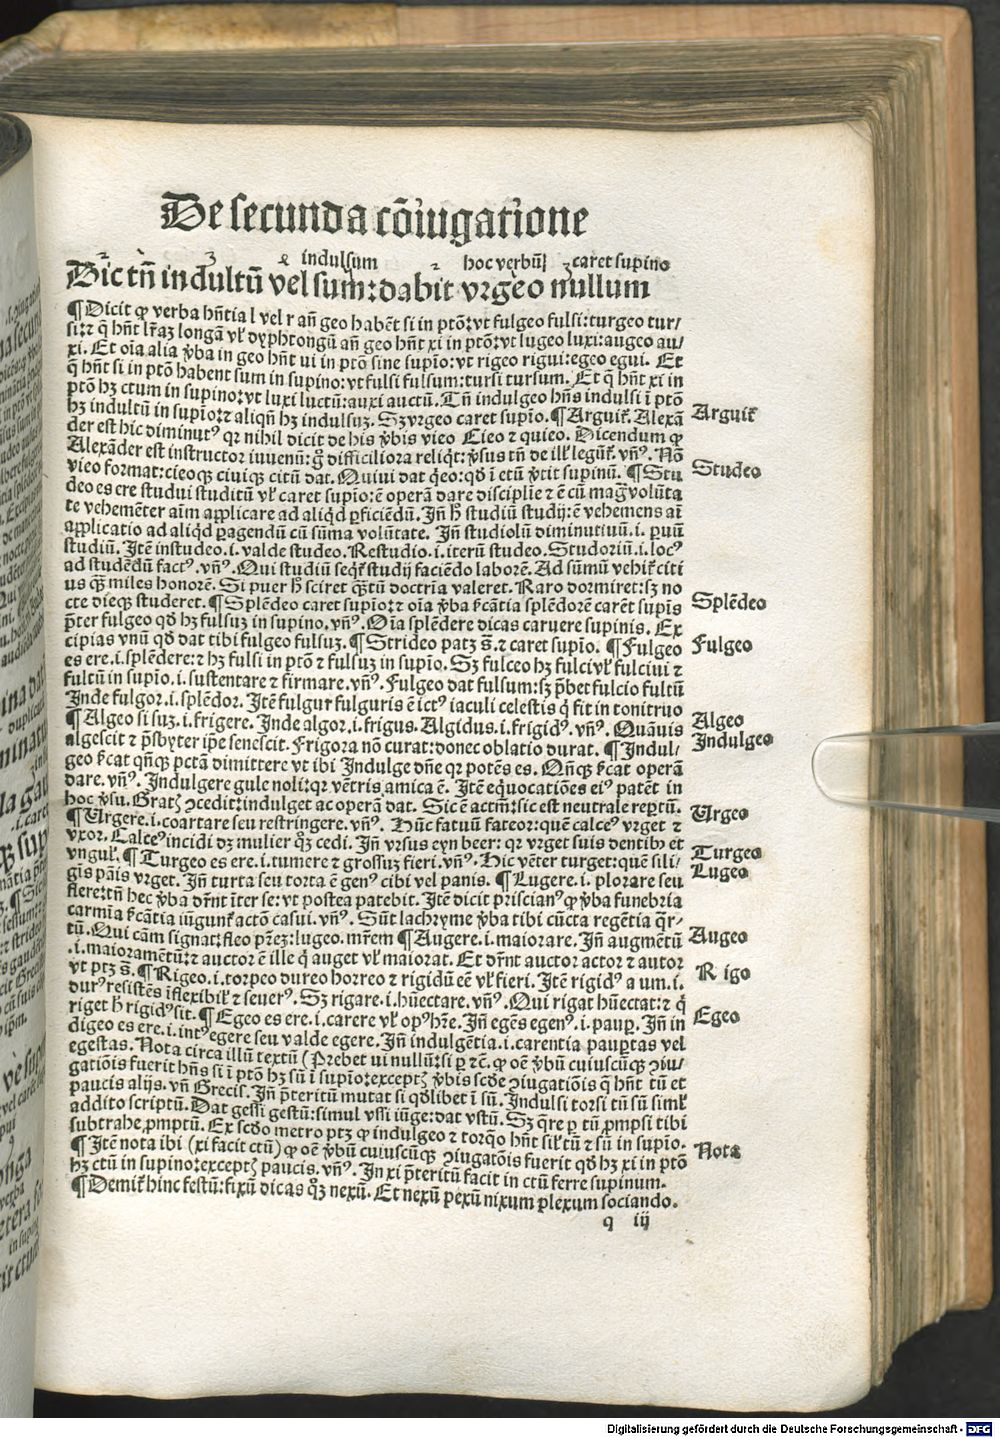 De secunda cōiugatione
⁊ indulsum hoc verbū caret supino
Dic tñ indultū vel sum: dabit vrgeo nullum
¶ Dicit ꝙ verba hñtia l vel r añ geo habēt si in ptō: vt fulgeo fulsi: turgeo tur/
si: ⁊ q̄ hñt lr̄aꝫ longā vl̓ dyphtongū añ geo hñt xi in ptō: vt lugeo luxi: augeo au/
xi. Et oīa alia v̄ba in geo hñt ui in ptō sine supīo: vt rigeo rigui: egeo egui. Et
q̄ hñt si in ptō habent sum in supino: vt fulsi fulsum: tursi tursum. Et q̄ hñt xi in
ptō hꝫ ctum in supino: vt luxi luctū: auxi auctū. Tñ indulgeo hñs indulsi ī ptō
hꝫ indultū in supīo: ⁊ aliqñ hꝫ indulsuꝫ. Sꝫ vrgeo caret supīo. ¶ Arguit̄. Alexā
der est hic diminutꝰ qꝛ nihil dicit de his v̄bis vieo Cieo ⁊ quieo. Dicendum ꝙ
Alexāder est instructor iuuenū: gͦ difficiliora reliq̄t: v̄sus tñ de ill̓ legūt̄. vñꝰ. Nō
vieo format: cieoqꝫ ciuiqꝫ citū dat. Quiui dat q̄eo: qd̓ ī etū v̄tit supinū. ¶ Stu
deo es ere studui studitū vl̓ caret supīo: ē operā dare disciplīe ⁊ ē cū maḡ volūta
te vehemēter aīm applicare ad aliq̄d ꝑficiēdū. Jñ h̄ studiū studij: ē vehemens aī
applicatio ad aliq̄d ꝑagendū cū sūma volūtate. Jñ studiolū diminutiuū. i. ꝑuū
studiū. Jtē instudeo. i. valde studeo. Restudio. i. iterū studeo. Studoriū. i. locꝰ
ad studēdū factꝰ. vñꝰ. Qui studiū seqt̄ studij faciēdo laborē. Ad sūmū vehit̄ citi
us qꝫ miles honorē. Si puer h̄ sciret q̄tū doctrīa valeret. Raro dormiret: sꝫ no
cte dieqꝫ studeret. ¶ Splēdeo caret supīo: ⁊ oīa v̄ba sc̄antia splēdorē carēt supīs
p̄ter fulgeo qd̓ hꝫ fulsuꝫ in supino. vñꝰ. Oīa splēdere dicas caruere supinis. Ex
cipias vnū qd̓ dat tibi fulgeo fulsuꝫ. ¶ Strideo patꝫ s̄. ⁊ caret supīo. ¶ Fulgeo
es ere. i. splēdere: ⁊ hꝫ fulsi in ptō ⁊ fulsuꝫ in supīo. Sꝫ fulceo hꝫ fulci vl̓ fulciui ⁊
fultū in supīo. i. sustentare ⁊ firmare. vñꝰ. Fulgeo dat fulsum: sꝫ p̄bet fulcio fultū
Jnde fulgor. i. splēdor. Jtē fulgur fulguris ē ictꝰ iaculi celestis q̄ fit in tonitruo
¶ Algeo si suꝫ. i. frigere. Jnde algor. i. frigus. Algidus. i. frigidꝰ. vñꝰ. Quāuis
algescit ⁊ p̄sbyter ip̄e senescit. Frigora nō curat: donec oblatio durat. ¶ Jndul/
geo sc̄at qñqꝫ pctā dimittere vt ibi Jndulge dñe qꝛ potēs es. Qñqꝫ sc̄at operā
dare. vñꝰ. Jndulgere gule noli: qꝛ vētris amica ē. Jtē equocatiōes eiꝰ patēt in
hoc v̄su. Gratꝫ ꝯcedit: indulget ac operā dat. Sic ē actīū: sic est neutrale reꝑtū.
¶ Urgere. i. coartare seu restringere. vñꝰ. Hūc fatuū fateor: quē calceꝰ vrget ⁊
vxor. Calceꝰ incidi dꝫ mulier qꝫ cedi. Jñ vrsus eyn beer: qꝛ vrget suis dentibꝫ et
vngul̓. ¶ Turgeo es ere. i. tumere ⁊ grossuꝫ fieri. vñꝰ. Hic vēter turget: quē sili/
gis panīs vrget. Jñ turta seu torta ē genꝰ cibi vel panis. ¶ Lugere. i. plorare seu
flere: tñ hec v̄ba dr̄nt īter se: vt postea patebit. Jtē dicit priscianꝰ ꝙ v̄ba funebria
carmīa sc̄antia iūgunt̄ actō casui. vñꝰ. Sūt lachryme v̄ba tibi cūcta regētia q̄r/
tū. Qui cām signat: fleo pr̄eꝫ: lugeo. mr̄em ¶ Augere. i. maiorare. Jñ augmētū
. i. maioramētū: ⁊ auctor ē ille q̄ auget vl̓ maiorat. Et dr̄nt auctor actor ⁊ autor
vt ptꝫ s̄. ¶ Rigeo. i. torpeo dureo horreo ⁊ rigidū eē vl̓ fieri. Jtē rigidꝰ a um. i.
durꝰ resistēs īflexibil̓ ⁊ seuerꝰ. Sꝫ rigare. i. hūectare. vñꝰ. Qui rigat hūectat: ⁊ q̄
riget h̄ rigidꝰ sit. ¶ Egeo es ere. i. carere vl̓ opꝰ hr̄e. Jñ egēs egenꝰ. i. pauꝑ. Jñ in
digeo es ere. i. intꝰ egere seu valde egere. Jñ indulgētia. i. carentia pauꝑtas vel
egestas. Nota circa illū textū (Prebet ui nullū: si ꝑ ⁊c̄. ꝙ oē v̄bū cuiuscūqꝫ ꝯiu/
gatiōis fuerit hñs si ī ptō hꝫ sū ī supīo: exceptꝫ v̄bis scd̓e ꝯiugatiōis q̄ hñt tū et
paucis alijs. vñ Grecis. Jñ p̄teritū mutat si qd̓libet ī sū. Jndulsi torsi tū sū siml̓
addito scriptū. Dat gessi gestū: simul vssi iūge: dat vstū. Sꝫ q̄re ꝑ tū ꝓmpsi tibi
subtrahe, ꝓmptū. Ex scd̓o metro ptꝫ ꝙ indulgeo ⁊ torq̄o hñt sil̓ tū ⁊ sū in supīo.
¶ Jtē nota ibi (xi facit ctū) ꝙ oē v̄bū cuiuscūqꝫ ꝯiugatōis fuerit qd̓ hꝫ xi in ptō
hꝫ ctū in supino: exceptꝫ paucis. vñꝰ. Jn xi p̄teritū facit in ctū ferre supinum.
¶ Demit̄ hinc festū: fixū dicas qꝫ nexū. Et nexū pexū nixum plexum sociando.
q iij
Arguit̄
Studeo
Splēdeo
Fulgeo
Algeo
Jndulgeo
Urgeo
Turgeo
Lugeo
Augeo
Rigo
Egeo
Nota
Digitalisierung gefördert durch die Deutsche Forschungsgemeinschaft - DFG